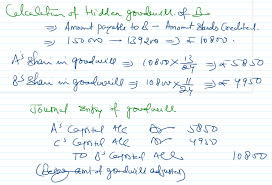 Calculation of Hidden goodwill of B —
⇒ Amount payable to B - Amount stands Credited.
⇒ 150000 - 139200 ⇒ ₹ 10800.
A's Share in goodwill ⇒ 10800 × 13/24 ⇒ ₹ 5850
B's Share in goodwill ⇒ 10800 × 11/24 ⇒ ₹ 4950
Journal entry of goodwill
A's Capital A/c Dr 5850
C's Capital A/c Dr 4950
TO B's Capital A/c 10800
(Being amt of goodwill adjusted)